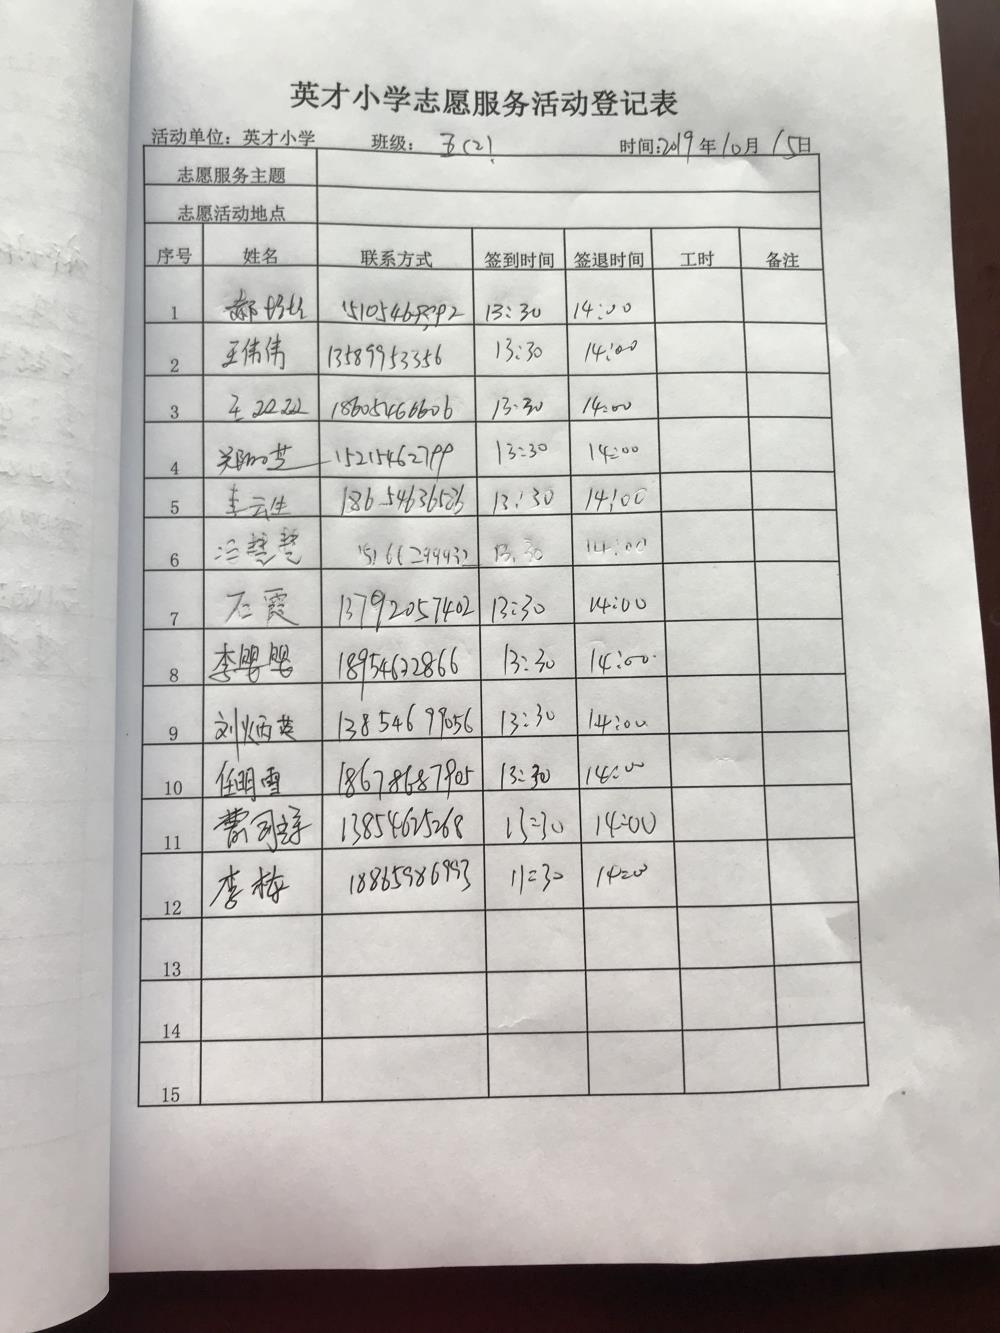 英才小学志愿服务活动登记表
活动单位：英才小学 班级：五(2) 时间:2019年10月15日
志愿服务主题
志愿活动地点
序号 姓名 联系方式 签到时间 签退时间 工时 备注
1 13:30 14:00
2 王伟伟 13589953356 13:30 14:00
3 王 18605466606 13:30 14:00
4 15215462799 13:30 14:00
5 李云生 13:30 14:00
6 慧慧 13:30 14:00
7 石霞 13792057402 13:30 14:00
8 李 18954632866 13:30 14:00
9 刘炳英 13854699056 13:30 14:00
10 任明雪 18678687905 13:30 14:00
11 13854625268 13:30 14:00
12 李梅 18865986993 11:30 14:00
13
14
15